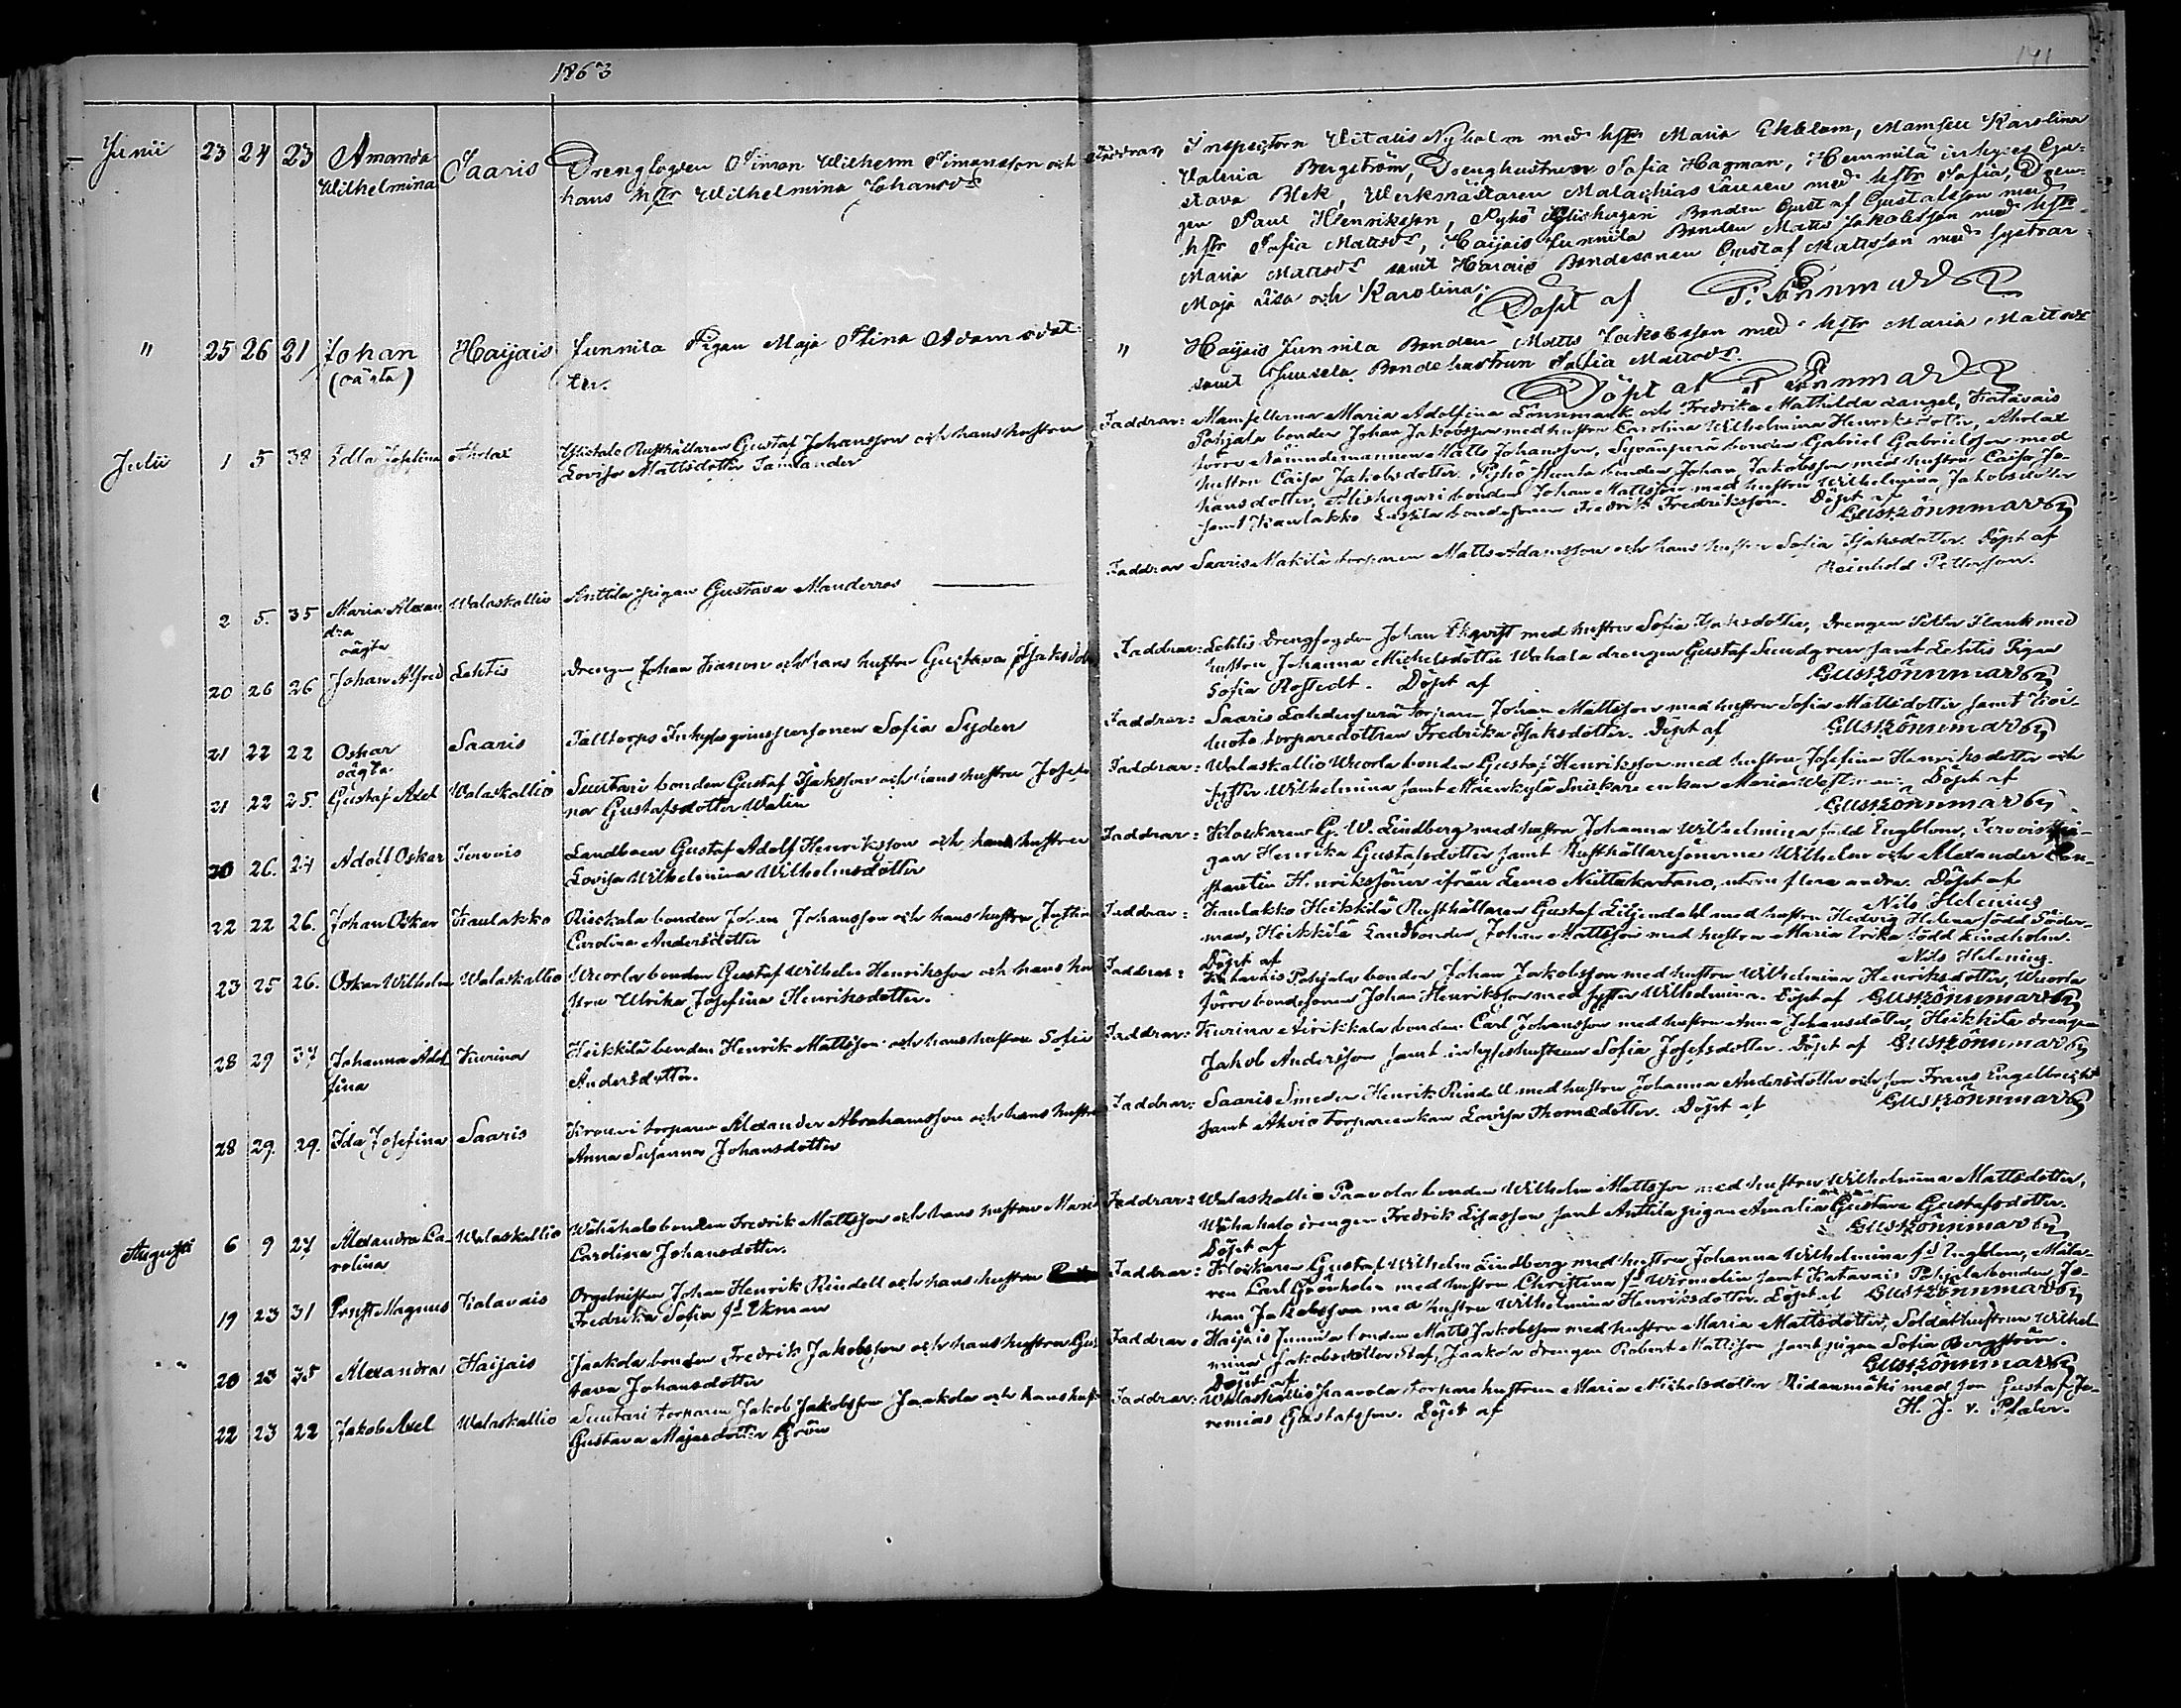 1863
141
Junii 23 24 23 Amanda Wilhelmina Saaris Drengfogden Simon Wilhelm Simonsson och
hans hstr Wilhelmina Johansdr
Faddrar, Inspectorn Vitalis Nyholm med hstr Maria Ekblom, Mamsell Karolina
Valeria Bergström, Drenghustrun Sofia Hagman, Hemmilä inhyses Gu-
stava Blek, Werkmästaren Malachias med hstr Sofia, Dren-
gen Paul Henriksson, Pyhö Bonden Gustaf Gustafsson med
hstr Sofia Mattsdr, Haijais Junnila Bonden Matts Jakobsson med hstr
Maria Mattsdr samt Harais Bondesonen Gustaf Mattsson med systrar
Maja Lisa och Karolina;
Döpt af Lönnmark
" 25 26 21 Johan (oägta) Haijais Junnila Pigan Maja Stina Adamsdot-
ter.
" Haijais Junnila Bonden Matts Jakobsson med hstr Maria Mattsdr
samt Bondehustrun Sofia Mattsdr.
Döpt af Lönnmark
Julii 1 5 38 Edla Josefina Aholax Rusthållaren Gustaf Johansson och hans hustru
Lovisa Mattsdotter Samlander
Faddrar: Mamsellerna Maria Adolfina Lönnmark och Fredrika Mathilda Langel, Katavais
Pohjala bonden Johan Jakobsson med hustru Carolina Wilhelmina Henriksdotter, Aholax
förre Nämndemannen Matts Johansson, Syvänperä bonden Gabriel Gabrielsson med
hustru Caisa Jakobsdotter, Pyhö bonden Johan Jakobsson med hustru Caisa Jo-
hansdotter, bonden Johan Mattsson med hustru Wilhelmina Jakobsdotter
samt Kaulakko bondesonen Fredrik Fredriksson. Döpt af
Gust Lönnmark
2 5. 35 Maria Alexan
dra
oägta Walaskallio Anttila pigan Gustava Manderroos
Faddrar Saaris Mäkilä torparen Matts Adamsson och hans hustru Sofia Isaksdotter. Döpt af
Reinhold Pettersson.
20 26 26 Johan Alfred Lehtis Drengen Johan och hans hustru Gustava Isaksdotter
Faddrar: Lehtis Drengfogden Johan Ekqvist med hustru Sofia Isaksdotter, drengen Petter Stank med
hustru Johanna Michelsdotter Wahala drengen Gustaf Sundgren samt Lehtis Pigan
Sofia Rostedt. Döpt af Gust Lönnmark
21 22 22 Oskar
oägta. Saaris Talltorps Inhyses qvinspersonen Sofia Syden
Faddrar: Saaris Lahdenperä torparen Johan Mattsson med hustru Sofia Mattsdotter samt Koi-
luoto torparedottren Fredrika Isaksdotter. Döpt af Gust Lönnmark
21 22 25. Gustaf Axel Walaskallio Suutari bonden Gustaf Isaksson och hans hustru Josefi-
na Gustafsdotter Walin
Faddrar: Walaskallio Wuorla bonden Gustaf Henriksson med hustru Josefina Henriksdotter och
syster Wilhelmina samt Mäenkylä Snickare enkan Maria Westman. Döpt af
Gust Lönnmark
20 26. 24 Adolf Oskar Tervois Landboen Gustaf Adolf Henriksson och hans hustru
Lovisa Wilhelmina Wilhelmsdotter
Faddrar: Klockaren G. W. Lindberg med hustru Johanna Wilhelmina född Engblom, Tervois pi-
gan Henrika Gustafsdotter samt Rusthållaresönerne Wilhelm och Alexander Con-
stantin Henrikssöner ifrån Lemo Niittukartano, utom flera andra. Döpt af
Nils Helenius
22 22 26. Johan Oskar Kaulakko Risekala bonden Johan Johansson och hans hustru Justina
Carolina Andersdotter
Faddrar: Kaulakko Heikkilä Rusthållaren Gustaf Liljendahl med hustru Hedvig Helena född Söder-
man, Heikkilä Landbonden Johan Mattsson med hustru Maria Erika född Lindholm.
Döpt af Nils Helenius.
23 25 26. Oskar Wilhelm Walaskallio Wuorla bonden Gustaf Wilhelm Henriksson och hans hu
stru Ulrika Josefina Henriksdotter.
Faddrar: Katavais Pohjala bonden Johan Jakobsson med hustru Wilhelmina Henriksdotter, Wuorla
förre bondesonen Johan Henriksson med syster Wilhelmina. Döpt af Gust Lönnmark
28 29 37 Johanna Adol
fina Kurina Heikkilä bonden Henrik Mattsson och hans hustru Sofia
Andersdotter.
Faddrar: Kurina Airikkala bonden Carl Johansson med hustru Anna Johansdotter, Heikkilä drengen
Jakob Andersson samt inhyseshustrun Sofia Josefsdotter. Döpt af Gust Lönnmark
28 29. 29. Ida Josefina Saaris Krouvi torparen Alexander Abrahamsson och hans hustru
Anna Susanna Johansdotter
Faddrar: Saaris Smeden Henrik Rindell med hustru Johanna Andersdotter och son Frans Engelbrecht
samt Ahvio torpareenkan Lovisa Thomsdotter. Döpt af Gust Lönnmark
Augusti 6 9 27 Alexandra Ca
rolina Walaskallio Wähähalo bonden Fredrik Mattsson och hans hustru Maria
Carolina Johansdotter.
Faddrar: Walaskallio Paavola bonden Wilhelm Mattsson med hustru Wilhelmina Mattsdotter,
Wähähalo drengen Fredrik Esjasson samt Anttila pigan Amalia Gustava Gustafsdotter.
Döpt af Gust Lönnmark
19 23 31 Ernst Magnus Katavais Orgelnisten Johan Henrik Rindell och hans hustru
Fredrika Sofia fd Ekman
Faddrar: Klockaren Gustaf Wilhelm Lindberg med hustru Johanna Wilhelmina fd Engblom, Måla-
ren Carl Grönholm med hustru Christina fd Wirmelin samt Katavais Pohjala bonden Jo-
han Jakobsson med hustru Wilhelmina Henriksdotter. Döpt af Gust Lönnmark
" " 20 23 35 Alexandra Haijais Jaakola bonden Fredrik Jakobsson och hans hustru Gus
tava Johansdotter
Faddrar: Haijais Junnila bonden Matts Jakobsson med hustru Maria Mattsdotter, Soldathustrun Wilhel
mina Jakobsdotter Staf, Jaakola drengen Robert Mattsson samt pigan Sofia Bergström.
Döpt af Gust Lönnmark
22 23 22 Jakob Axel Walaskallio Suutari torparen Jakob Jakobsson Jaakola och hans hust
Gustava Majasdotter Grön
Faddrar: Walaskallio Paavola torparehustrun Maria Michelsdotter Ridanmäki med son Gustaf Je-
remias Gustafsson. Döpt af H. J. v. Pfaler.